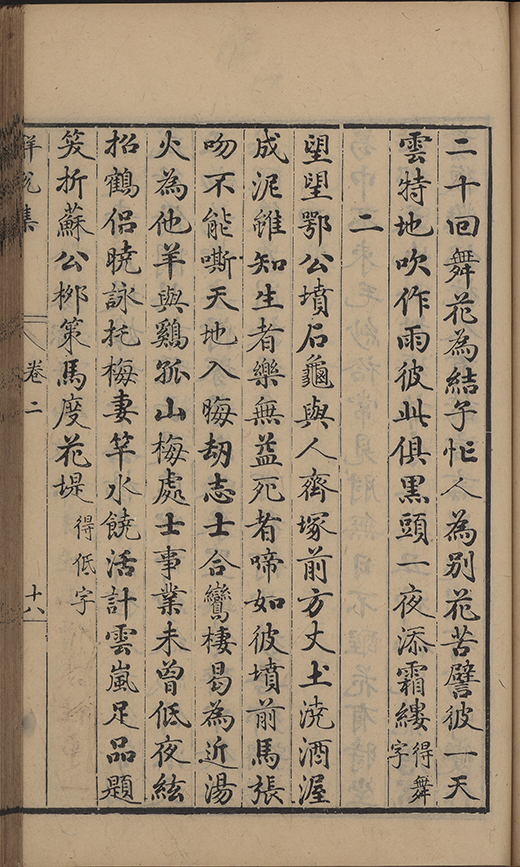 二十回舞花為結子忙人為別花苦譬彼一天
雲特地吹作雨彼此俱黑頭一夜添霜縷得舞字
二
望望鄂公墳石龜與人齊塚前方丈土澆酒渥
成泥雖知生者樂無益死者啼如彼墳前馬張
吻不能嘶天地入晦劫志士合鸞棲曷為近湯
火為他羊與鷄孤山梅處士事業未曾低夜絃
招鶴侶曉詠托梅妻竿水饒活計雲嵐足品題
笑折蘇公栁策馬度花堤得低字
卷二
十八